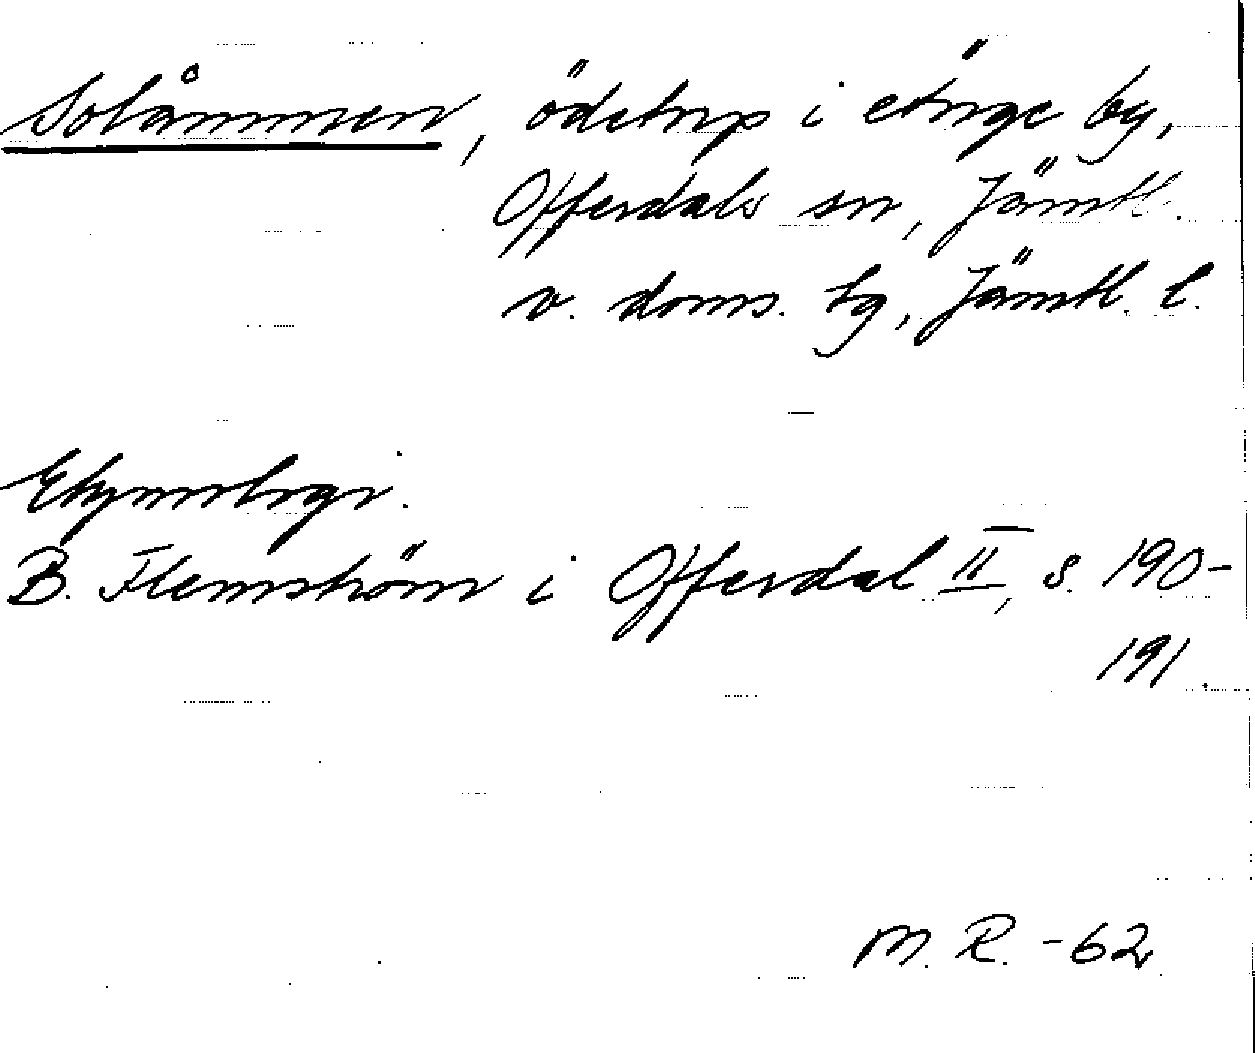 Solåmmen, ödetorp i Änge by,
Offerdals sn, Jämtl.
v. doms. tg, Jämtl. l.
Etymologi.
B. Flemström i Offerdal II, s. 190-
191.
M. R. -62